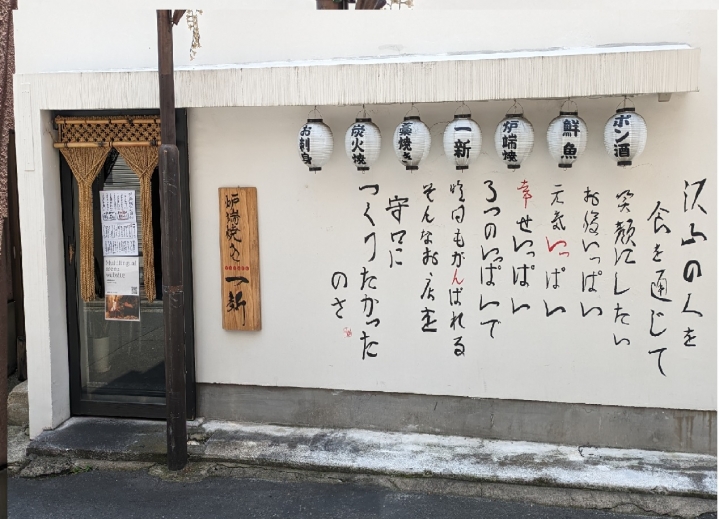 ポン酒
鮮魚
炉端焼
一新
藁焼き
炭火焼
お刺身
沢山の人を
食を通じて
笑顔にしたい
お腹いっぱい
元気いっぱい
幸せいっぱい
3つのいっぱいで
明日もがんばれる
そんなお店を
守口に
つくりたかった
のさ
炉端焼き 一新
Multilingual
menu
website